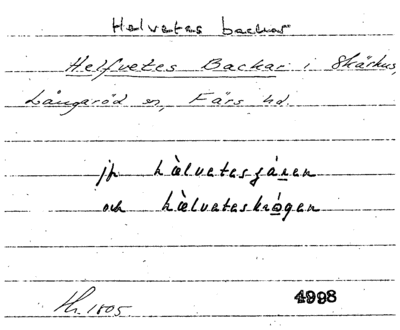 Helvetes backar
Helfvetes Backar i Skärhus,
Långaröd sn, Färs hd.
jfr hälvetesgáren
och hälveteskrógen
Hr. 1805. 4998